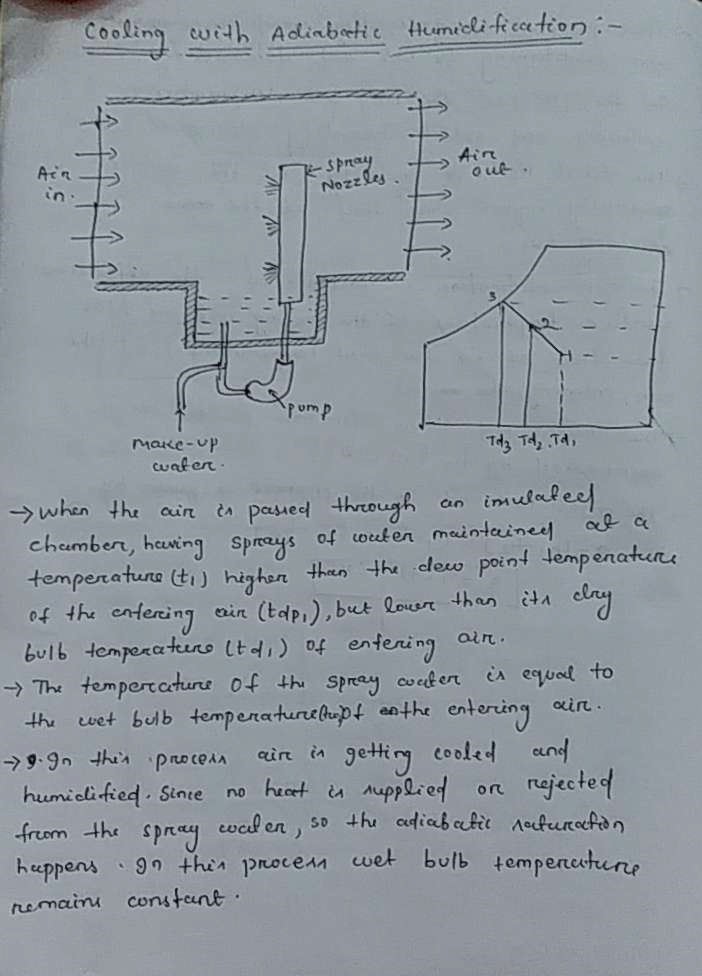 Cooling with Adiabatic Humidification :-
Air
in.
spray
Nozzles.
Air
out.
pump
make-up
water.
3
2
1
Td3 Td2 Td1
→ when the air is passed through an insulated
chamber, having sprays of water maintained at a
temperature (t1) higher than the dew point temperature
of the entering air (tdp1), but lower than its dry
bulb temperature (td1) of entering air.
→ The temperature of the spray water is equal to
the wet bulb temperature of the entering air.
→ In this process air is getting cooled and
humidified. Since no heat is supplied or rejected
from the spray water, so the adiabatic saturation
happens. In this process wet bulb temperature
remains constant.